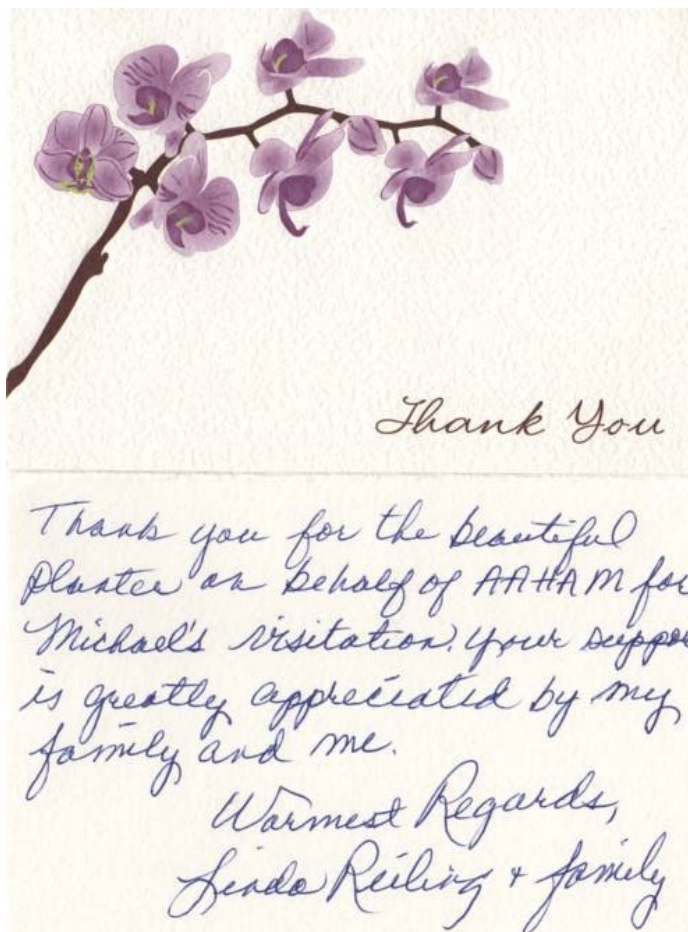 Thank You
Thank you for the beautiful
planter on behalf of AAHAM for
Michael's visitation. Your suppo
is greatly appreciated by my
family and me.
Warmest Regards,
Linda Reiling + family